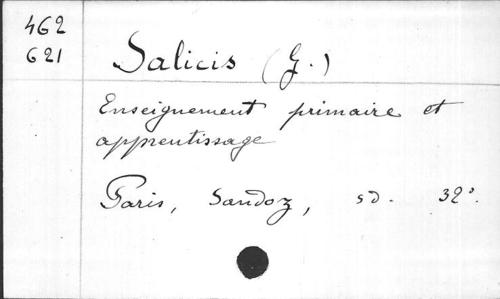 462
621
Salicis (G.)
Enseignement primaire et
apprentissage
Paris, Sandoz, sd. 32°.